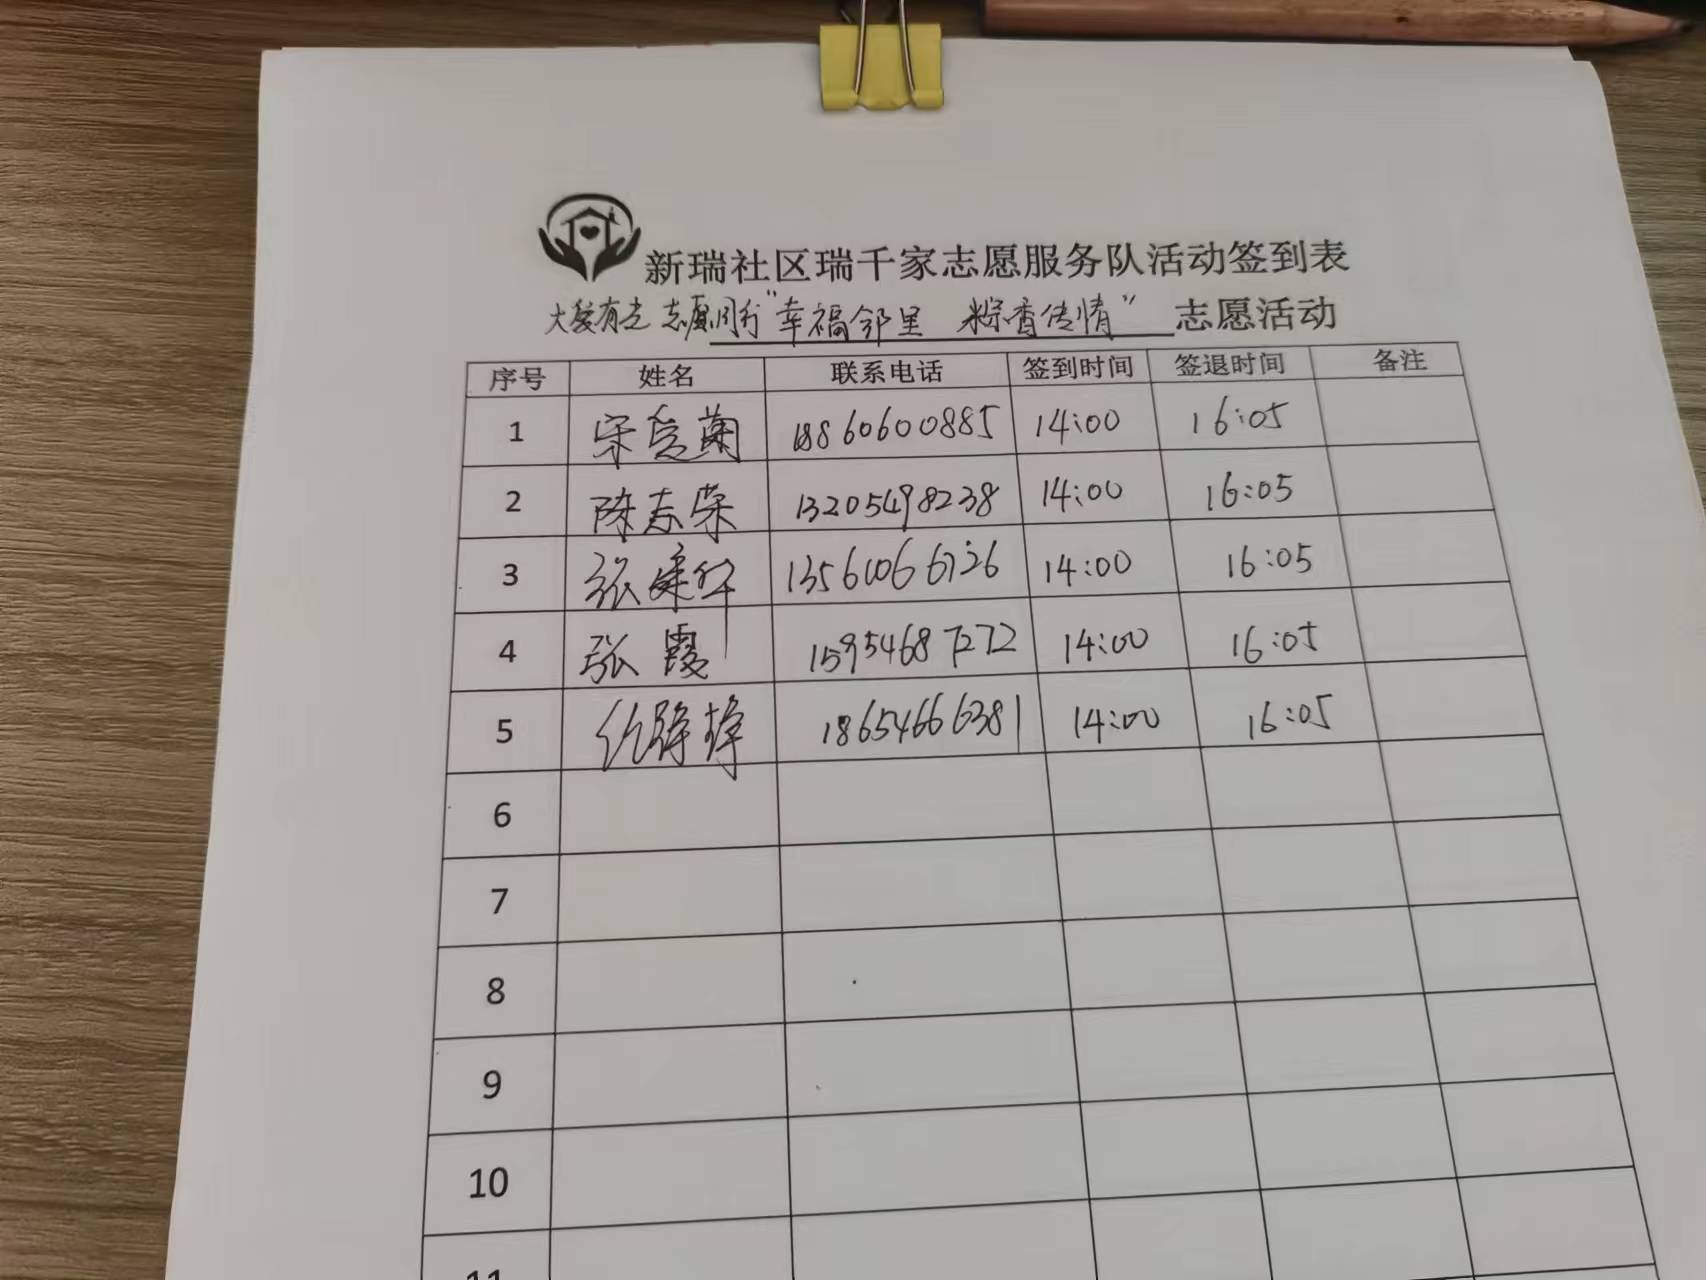 新瑞社区瑞千家志愿服务队活动签到表
大爱有它 志愿同行"幸福邻里 粽香传情" 志愿活动
序号 姓名 联系电话 签到时间 签退时间 备注
1 宋爱兰 18860600885 14:00 16:05
2 陈志荣 13205498238 14:00 16:05
3 张建华 14:00 16:05
4 张霞 15954687272 14:00 16:05
5 18654666381 14:00 16:05
6
7
8
9
10
11